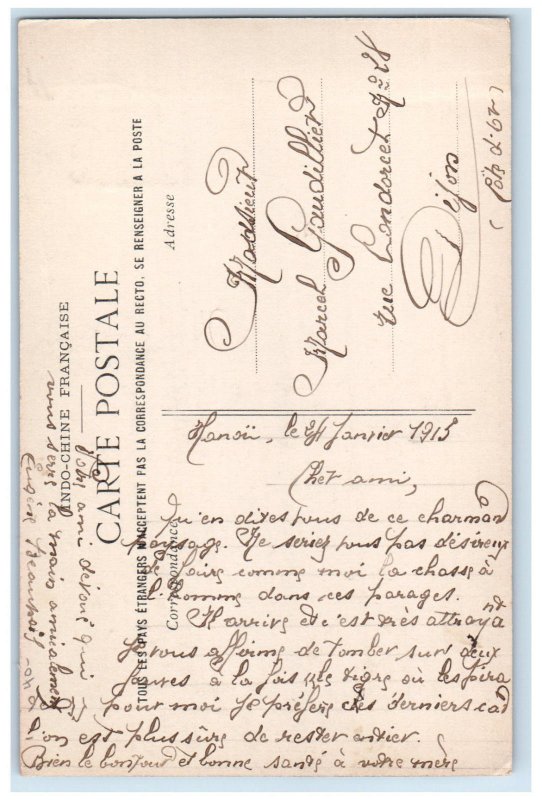 INDO-CHINE FRANÇAISE
CARTE POSTALE
TOUS LES PAYS ÉTRANGERS N'ACCEPTENT PAS LA CORRESPONDANCE AU RECTO, SE RENSEIGNER A LA POSTE
Correspondance
Adresse
Monsieur
Marcel Gaudillier
Rue Condorcet N° 28
Dijon
(Côte d'Or)
Hanoï, le 24 Janvier 1915
Cher ami,
Qu'en dites vous de ce charmant
paysage. Ne seriez vous pas désireux
de faire comme moi la chasse à
l'homme dans ces parages.
Il arrive et c'est très attrayant
je vous affirme de tomber sur deux
fauves à la fois le tigre ou les pira
pour moi je préfère ces derniers car
l'on est plus sûre de rester entier.
Bien le bonjour et bonne santé à votre mère
Votre ami dévoué qui
vous serre la main amicalement
Eugène